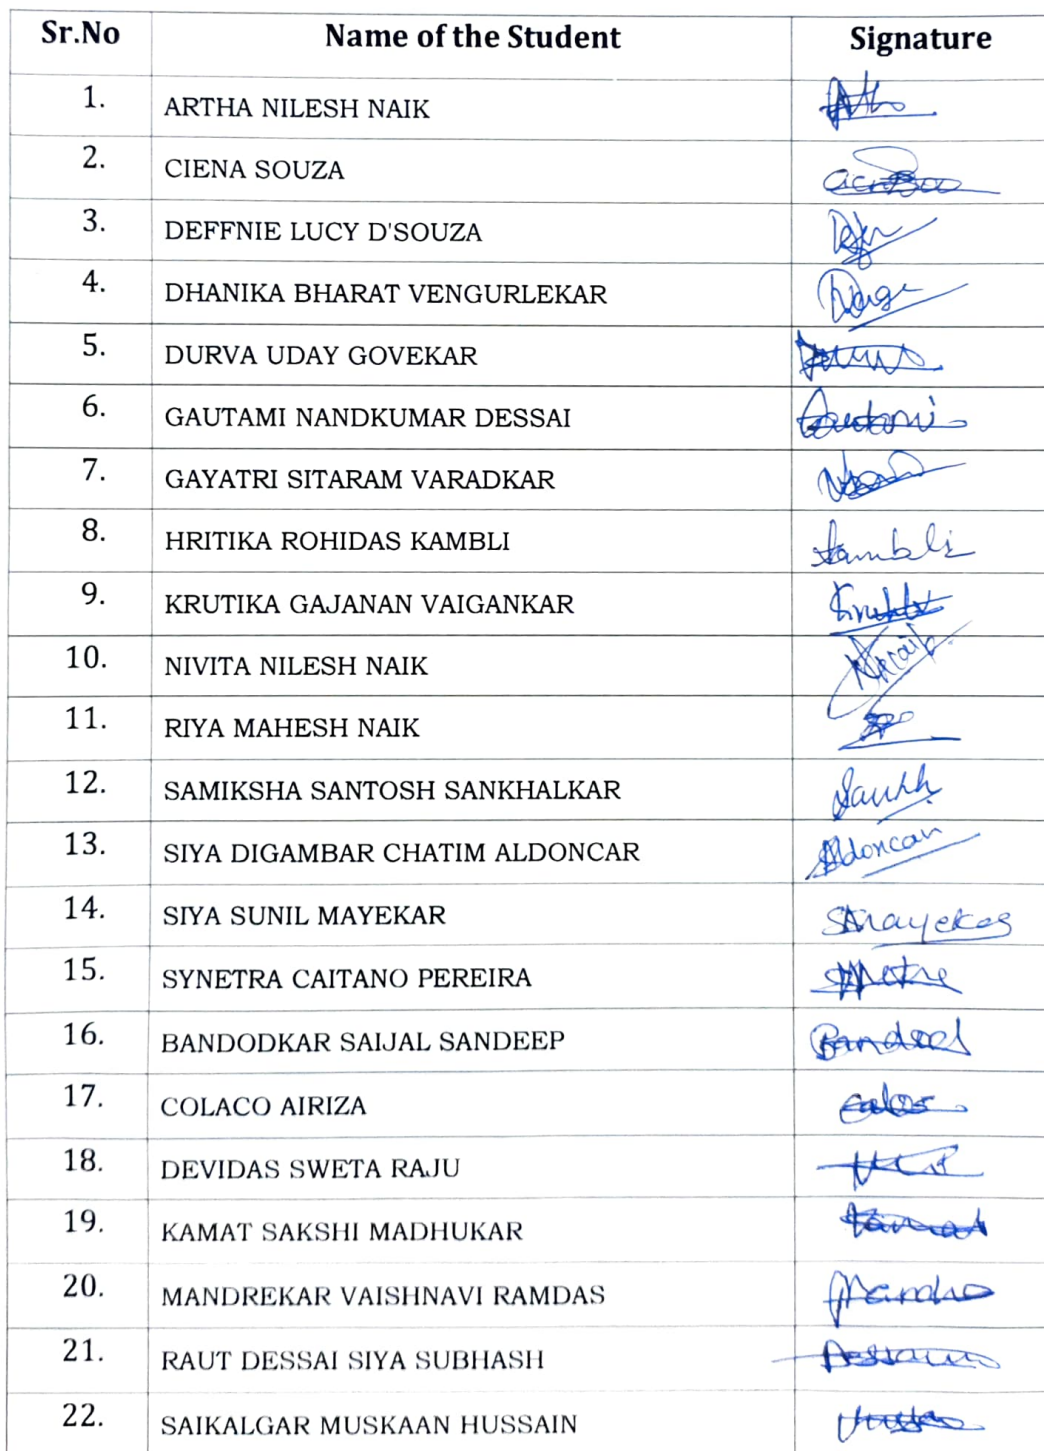 Sr.No Name of the Student Signature
1. ARTHA NILESH NAIK
2. CIENA SOUZA
3. DEFFNIE LUCY D'SOUZA
4. DHANIKA BHARAT VENGURLEKAR
5. DURVA UDAY GOVEKAR
6. GAUTAMI NANDKUMAR DESSAI Gautami
7. GAYATRI SITARAM VARADKAR
8. HRITIKA ROHIDAS KAMBLI Kambli
9. KRUTIKA GAJANAN VAIGANKAR
10. NIVITA NILESH NAIK
11. RIYA MAHESH NAIK
12. SAMIKSHA SANTOSH SANKHALKAR
13. SIYA DIGAMBAR CHATIM ALDONCAR Aldoncar
14. SIYA SUNIL MAYEKAR
15. SYNETRA CAITANO PEREIRA
16. BANDODKAR SAIJAL SANDEEP
17. COLACO AIRIZA
18. DEVIDAS SWETA RAJU
19. KAMAT SAKSHI MADHUKAR Kamat
20. MANDREKAR VAISHNAVI RAMDAS
21. RAUT DESSAI SIYA SUBHASH
22. SAIKALGAR MUSKAAN HUSSAIN